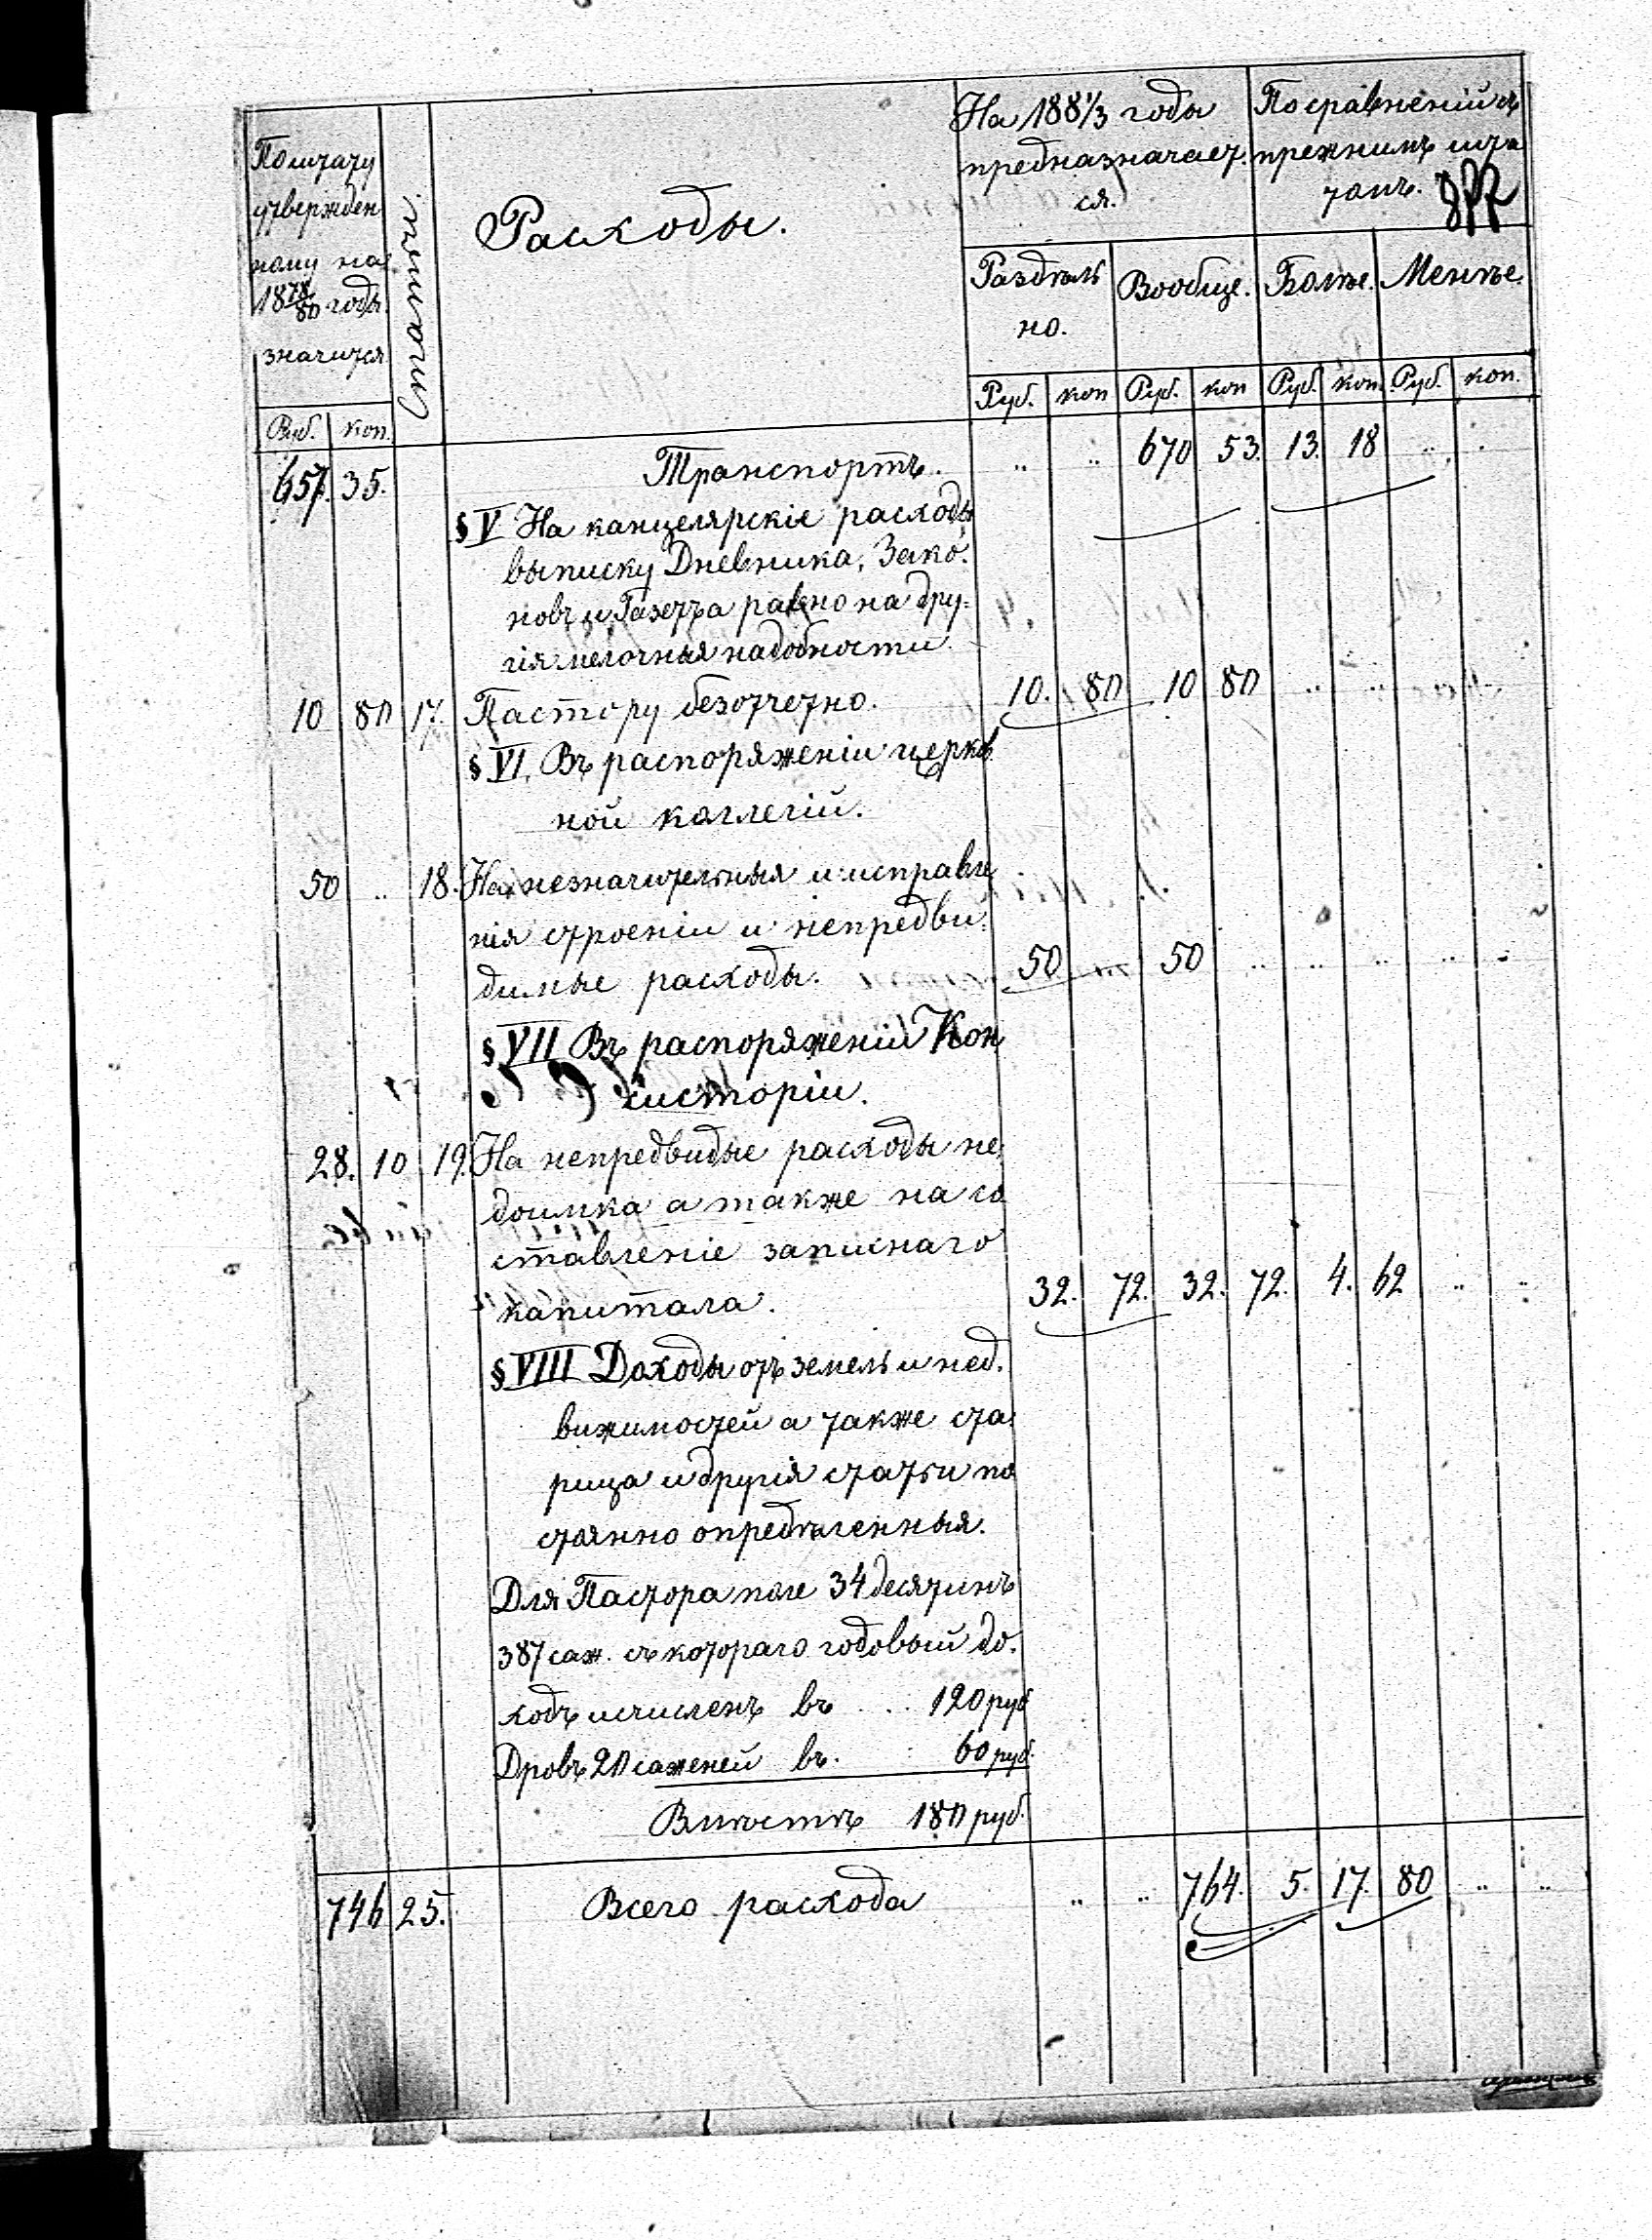 По штату
утвержден
ному на
18 78/80 годы
значится
Руб. коп.
Расходы.
На 188 1/3 годы
предназначает.
ся.
По сравненій съ
прежнимъ шта
томъ.
Раздѣль
но.
Вообще. Болѣе. Менѣе.
Руб. коп Руб. коп Руб. коп. Руб. коп.
657. 35. Транспортъ. .. .. 670 53. 13. 18 .. ..
§ V На канцелярскіе расходы
выписку Дневника, Зако-
новъ и Газетъ а равно на дру-
гія мелочныя надобности
10 80 17. Пастору безотчетно. 10. 80 10 80 .. ..
§ VI. Въ распоряженіи церков
ной коллегій.
50 .. 18. На незначительныя и исправле
нія строеніи и непредви-
димые расходы. 50 .. 50 .. .. .. .. ..
§ VII Въ распоряженіи Кон
систоріи.
28. 10 19. На непредвидые расходы не-
доимка а также на со
ставленіе запаснаго
капитала. 32. 72. 32. 72. 4. 62 .. ..
§ VIII Доходы отъ земель и нед.
вижимостей а также
и другія статьи по
стоянно опредѣленныя.
Для Пастора поле 34 десятинъ
387 саж. съ котораго годовый до-
ходъ исчисленъ въ .. 120 руб
Дровъ 20 саженей въ. : 60 руб.
Вмѣстѣ 180 руб.
746 25. Всего расхода .. .. 764. 5. 17. 80 .. ..